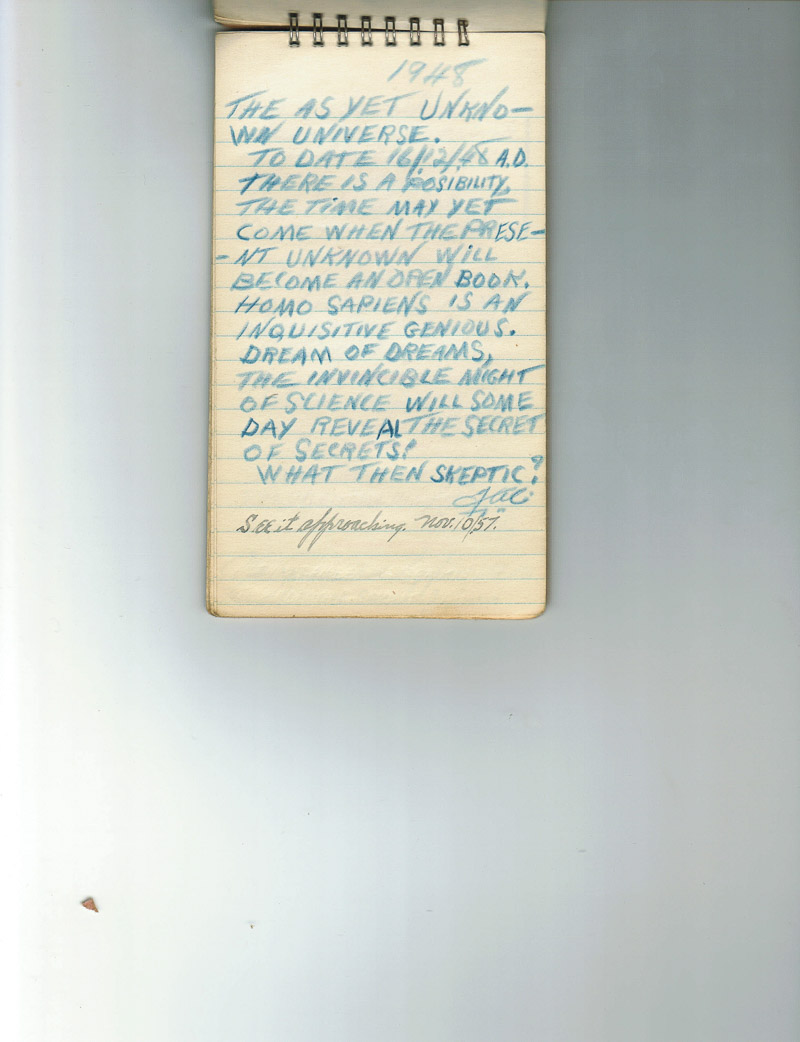 1948
THE AS YET UNKNO-
WN UNIVERSE.
TO DATE 16/12/48 A.D.
THERE IS A POSIBILITY,
THE TIME MAY YET
COME WHEN THE PRESE-
-NT UNKNOWN WILL
BECOME AN OPEN BOOK.
HOMO SAPIENS IS AN
INQUISITIVE GENIOUS.
DREAM OF DREAMS,
THE INVINCIBLE MIGHT
OF SCIENCE WILL SOME
DAY REVEAL THE SECRET
OF SECRETS!
WHAT THEN SKEPTIC?
See it approaching. Nov. 10/57.